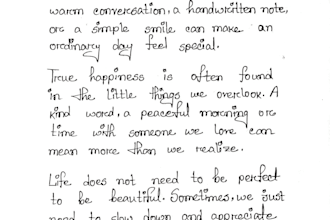 warm conversation, a handwritten note,
or a simple smile can make an
ordinary day feel special.
True happiness is often found
in the little things we overlook. A
kind word, a peaceful morning or
time with someone we love can
mean more than we realize.
Life does not need to be perfect
to be beautiful. Sometimes, we just
need to slow down and appreciate